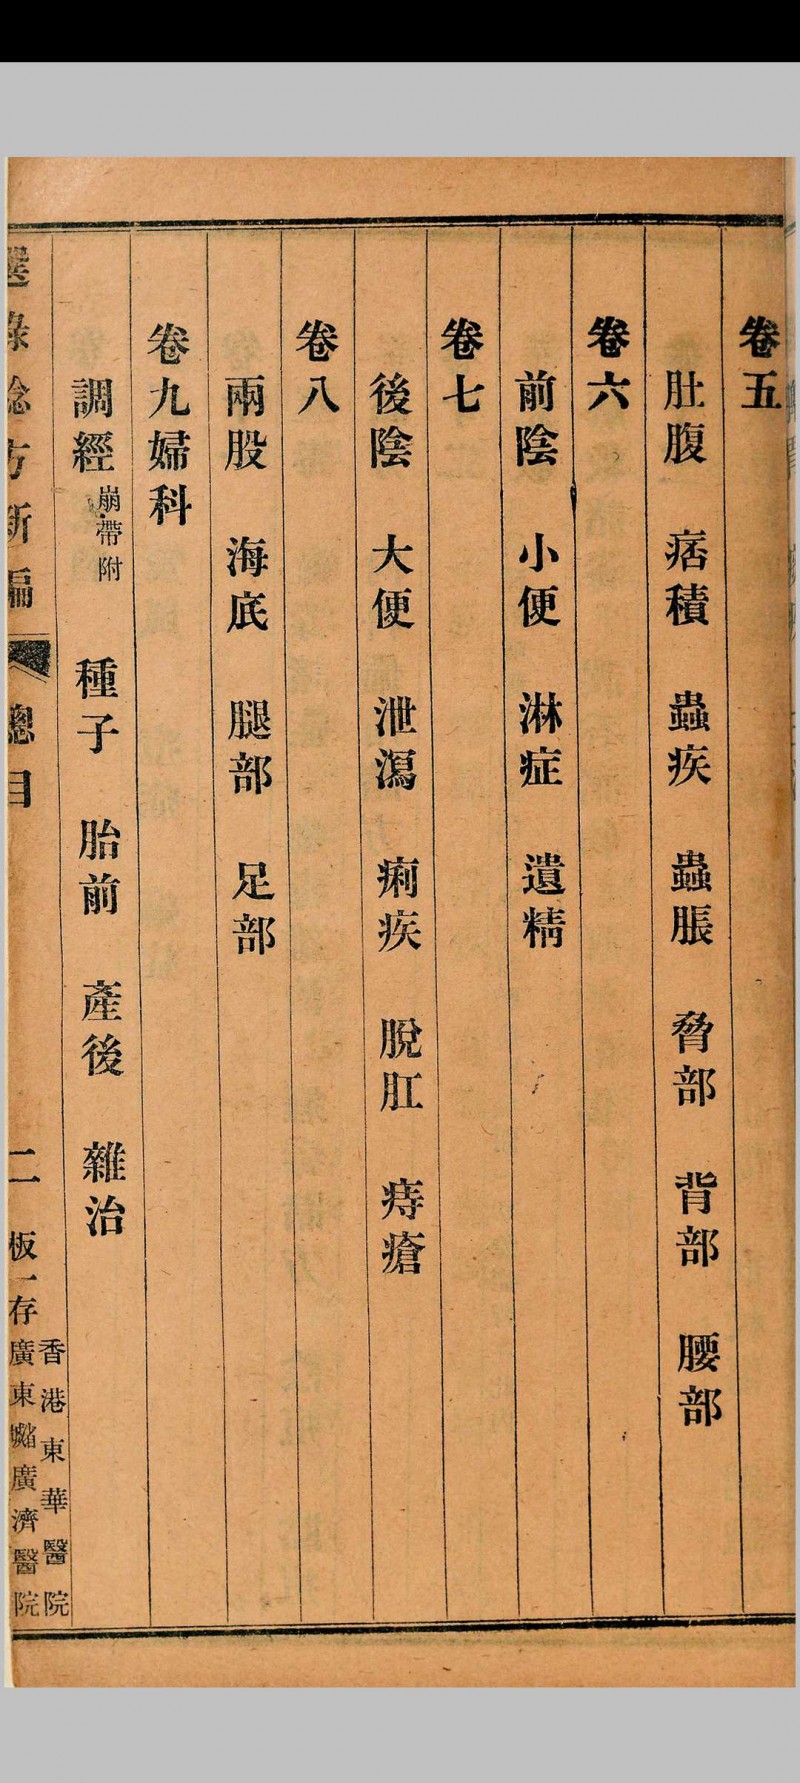 卷五
肚腹 痞積 蟲疾 蠱脹 脅部 背部 腰部
卷六
前陰 小便 淋症 遺精
卷七
後陰 大便 泄瀉 痢疾 脫肛 痔瘡
卷八
兩股 海底 腿部 足部
卷九婦科
調經 崩帶附 種子 胎前 產後 雜治
選錄驗方新編 總目 二 板存
香港東華醫院
廣東 廣濟醫院